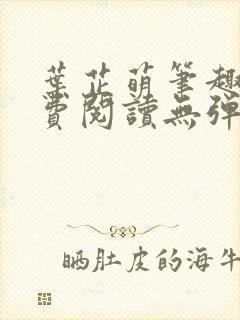 葉芷萌筆趣
費閱讀無彈
晒肚皮的海牛